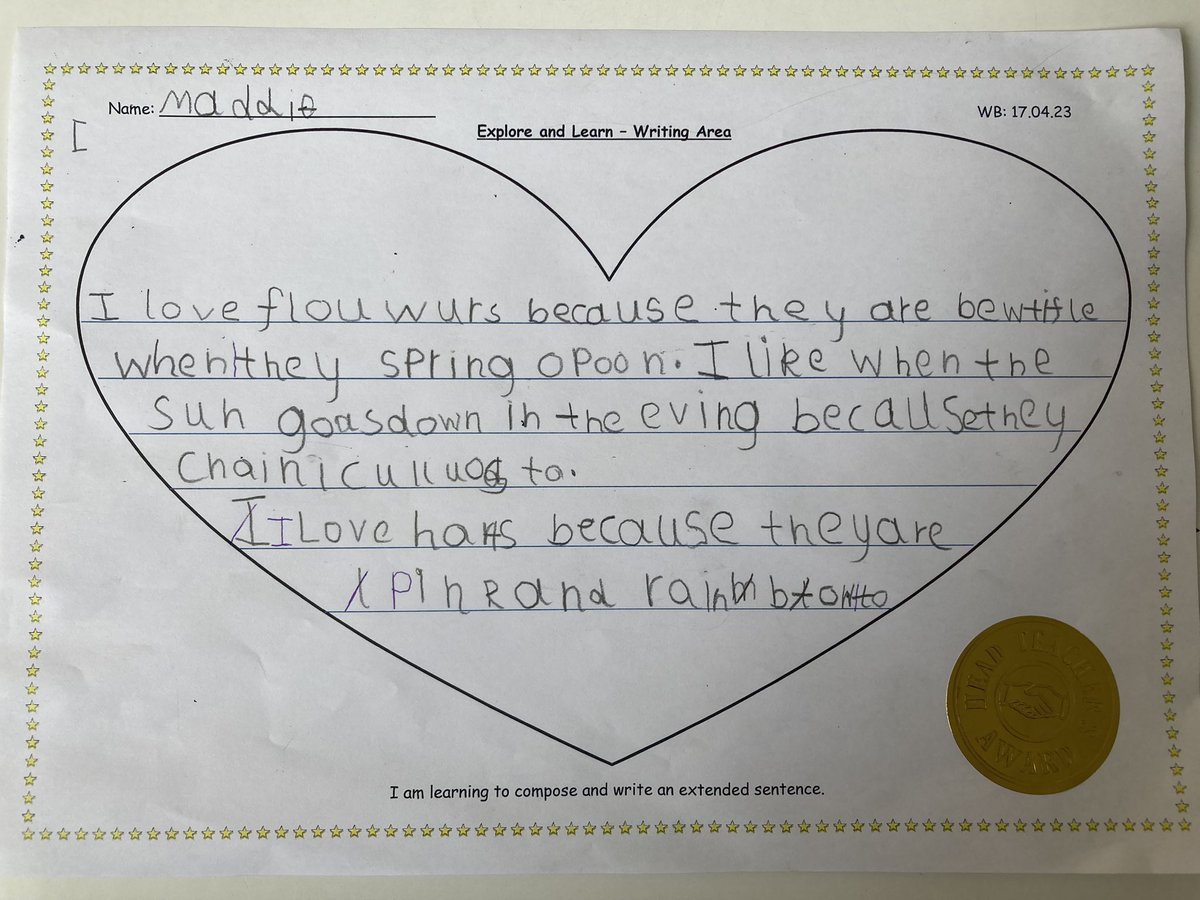 Name: Maddie
WB: 17.04.23
Explore and Learn – Writing Area
I love flouwurs because they are bewtifle
when they spring opoon. I like when the
sun goasdown in the eving becausethey
Chain to.
I Love harts because theyare
pink and
HEAD TEACHER
AWARD
I am learning to compose and write an extended sentence.